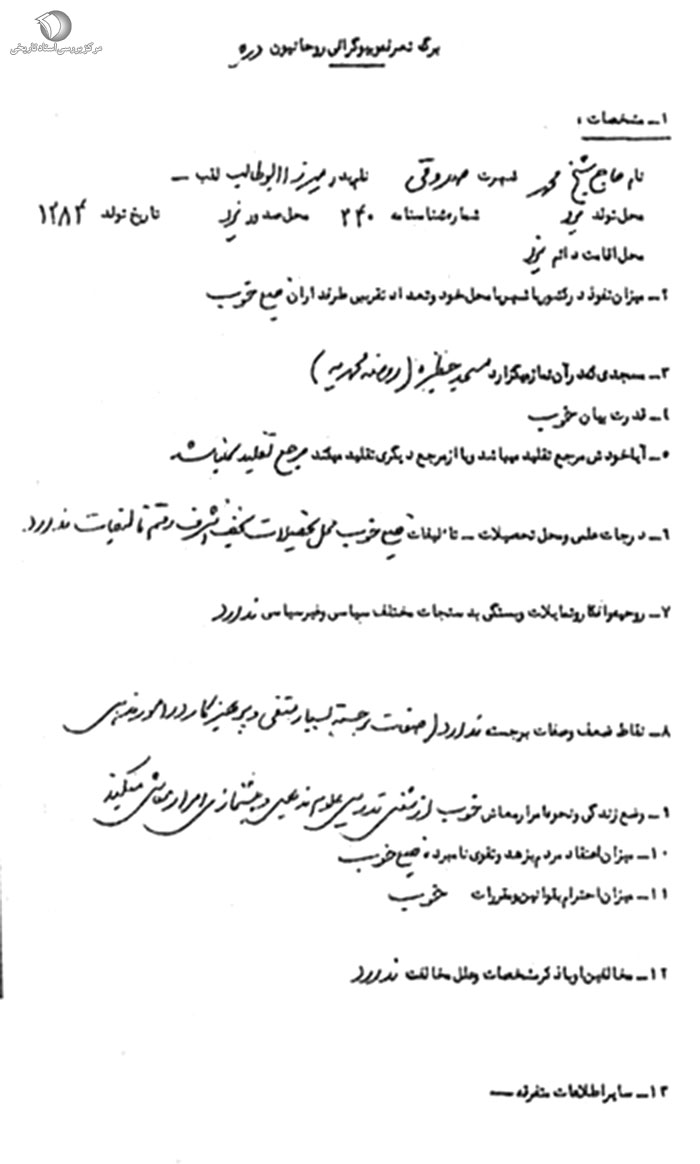 مرکز بررسی اسناد تاریخی
برگ تعرفه و بیوگرافی روحانیون درجه
۱ـ مشخصات :
نام حاج شیخ محمد شهرت صدوقی نام پدر میرزا ابوطالب لقب ـ
محل تولد یزد شماره شناسنامه ۲۴۰ محل صدور یزد تاریخ تولد ۱۲۸۴
محل اقامت دائم یزد
۲ـ میزان نفوذ در کشور یا شهر یا محل خود و تعداد تقریبی طرفداران خیلی خوب
۳ـ مسجدی که در آن نماز میگزارد مسجد حظیره (روضه محمدیه)
۴ـ قدرت بیان خوب
۵ـ آیا خودش مرجع تقلید میباشد و یا از مرجع دیگری تقلید میکند مرجع تقلید نمیباشد
۶ـ درجات علمی و محل تحصیلات ـ تألیفات خیلی خوب محل تحصیلات نجف اشرف و قم تألیفات ندارد.
۷ـ روحیه و افکار و تمایلات وبستگی بدستجات مختلف سیاسی و غیرسیاسی ندارد
۸ـ نقاط ضعف و صفات برجسته ندارد (صفات برجسته بسیار متقی و پرهیزکار در امور مذهبی
۹ـ وضع زندگی و نحوه امرار معاش خوب از تدریس علوم مذهبی و پیشنمازی امرار معاش میکند
۱۰ـ میزان اعتقاد مردم بزهد و تقوی نامبرده خیلی خوب
۱۱ـ میزان احترام بقوانین و مقررات خوب
۱۲ـ مخالفین او با ذکر مشخصات و علل مخالفت ندارد
۱۳ـ سایر اطلاعات متفرقه ـ